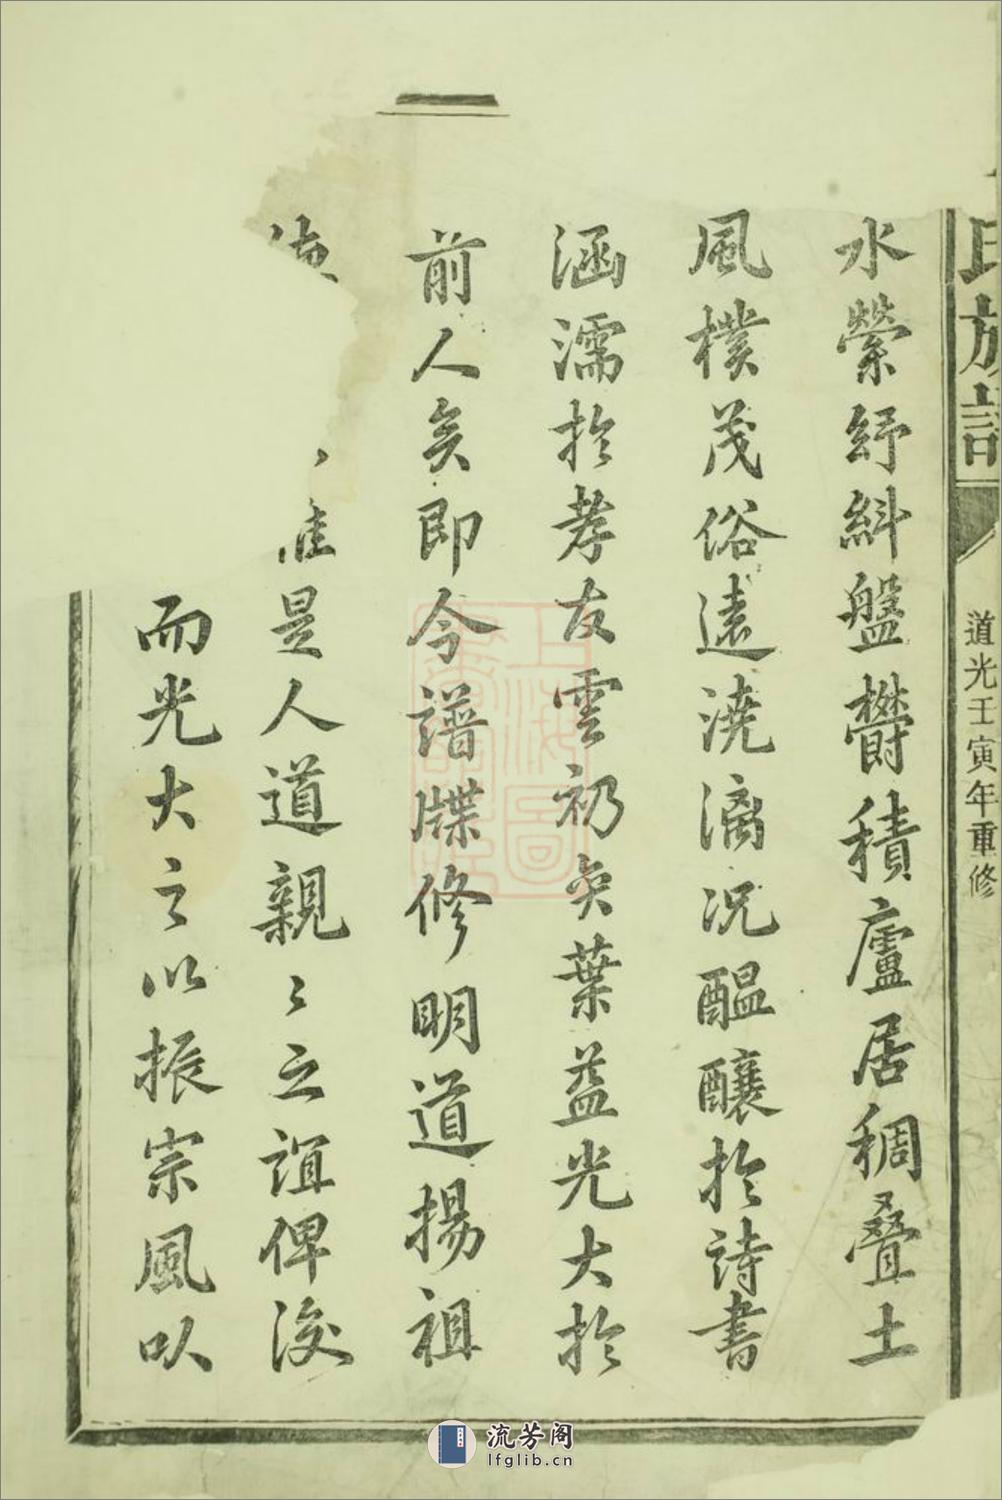 氏族譜
道光壬寅年重修
水縈紆斜盤欝積廬居稠疊土
風樸茂俗遠澆漓況醖釀於詩書
涵濡於孝友雲礽奕葉益光大於
前人矣即今譜牒修明道揚祖
德
惟是人道親〻之誼俾後
而光大之以振宗風以
上海圖書館藏
流芳阁
lfglib.cn